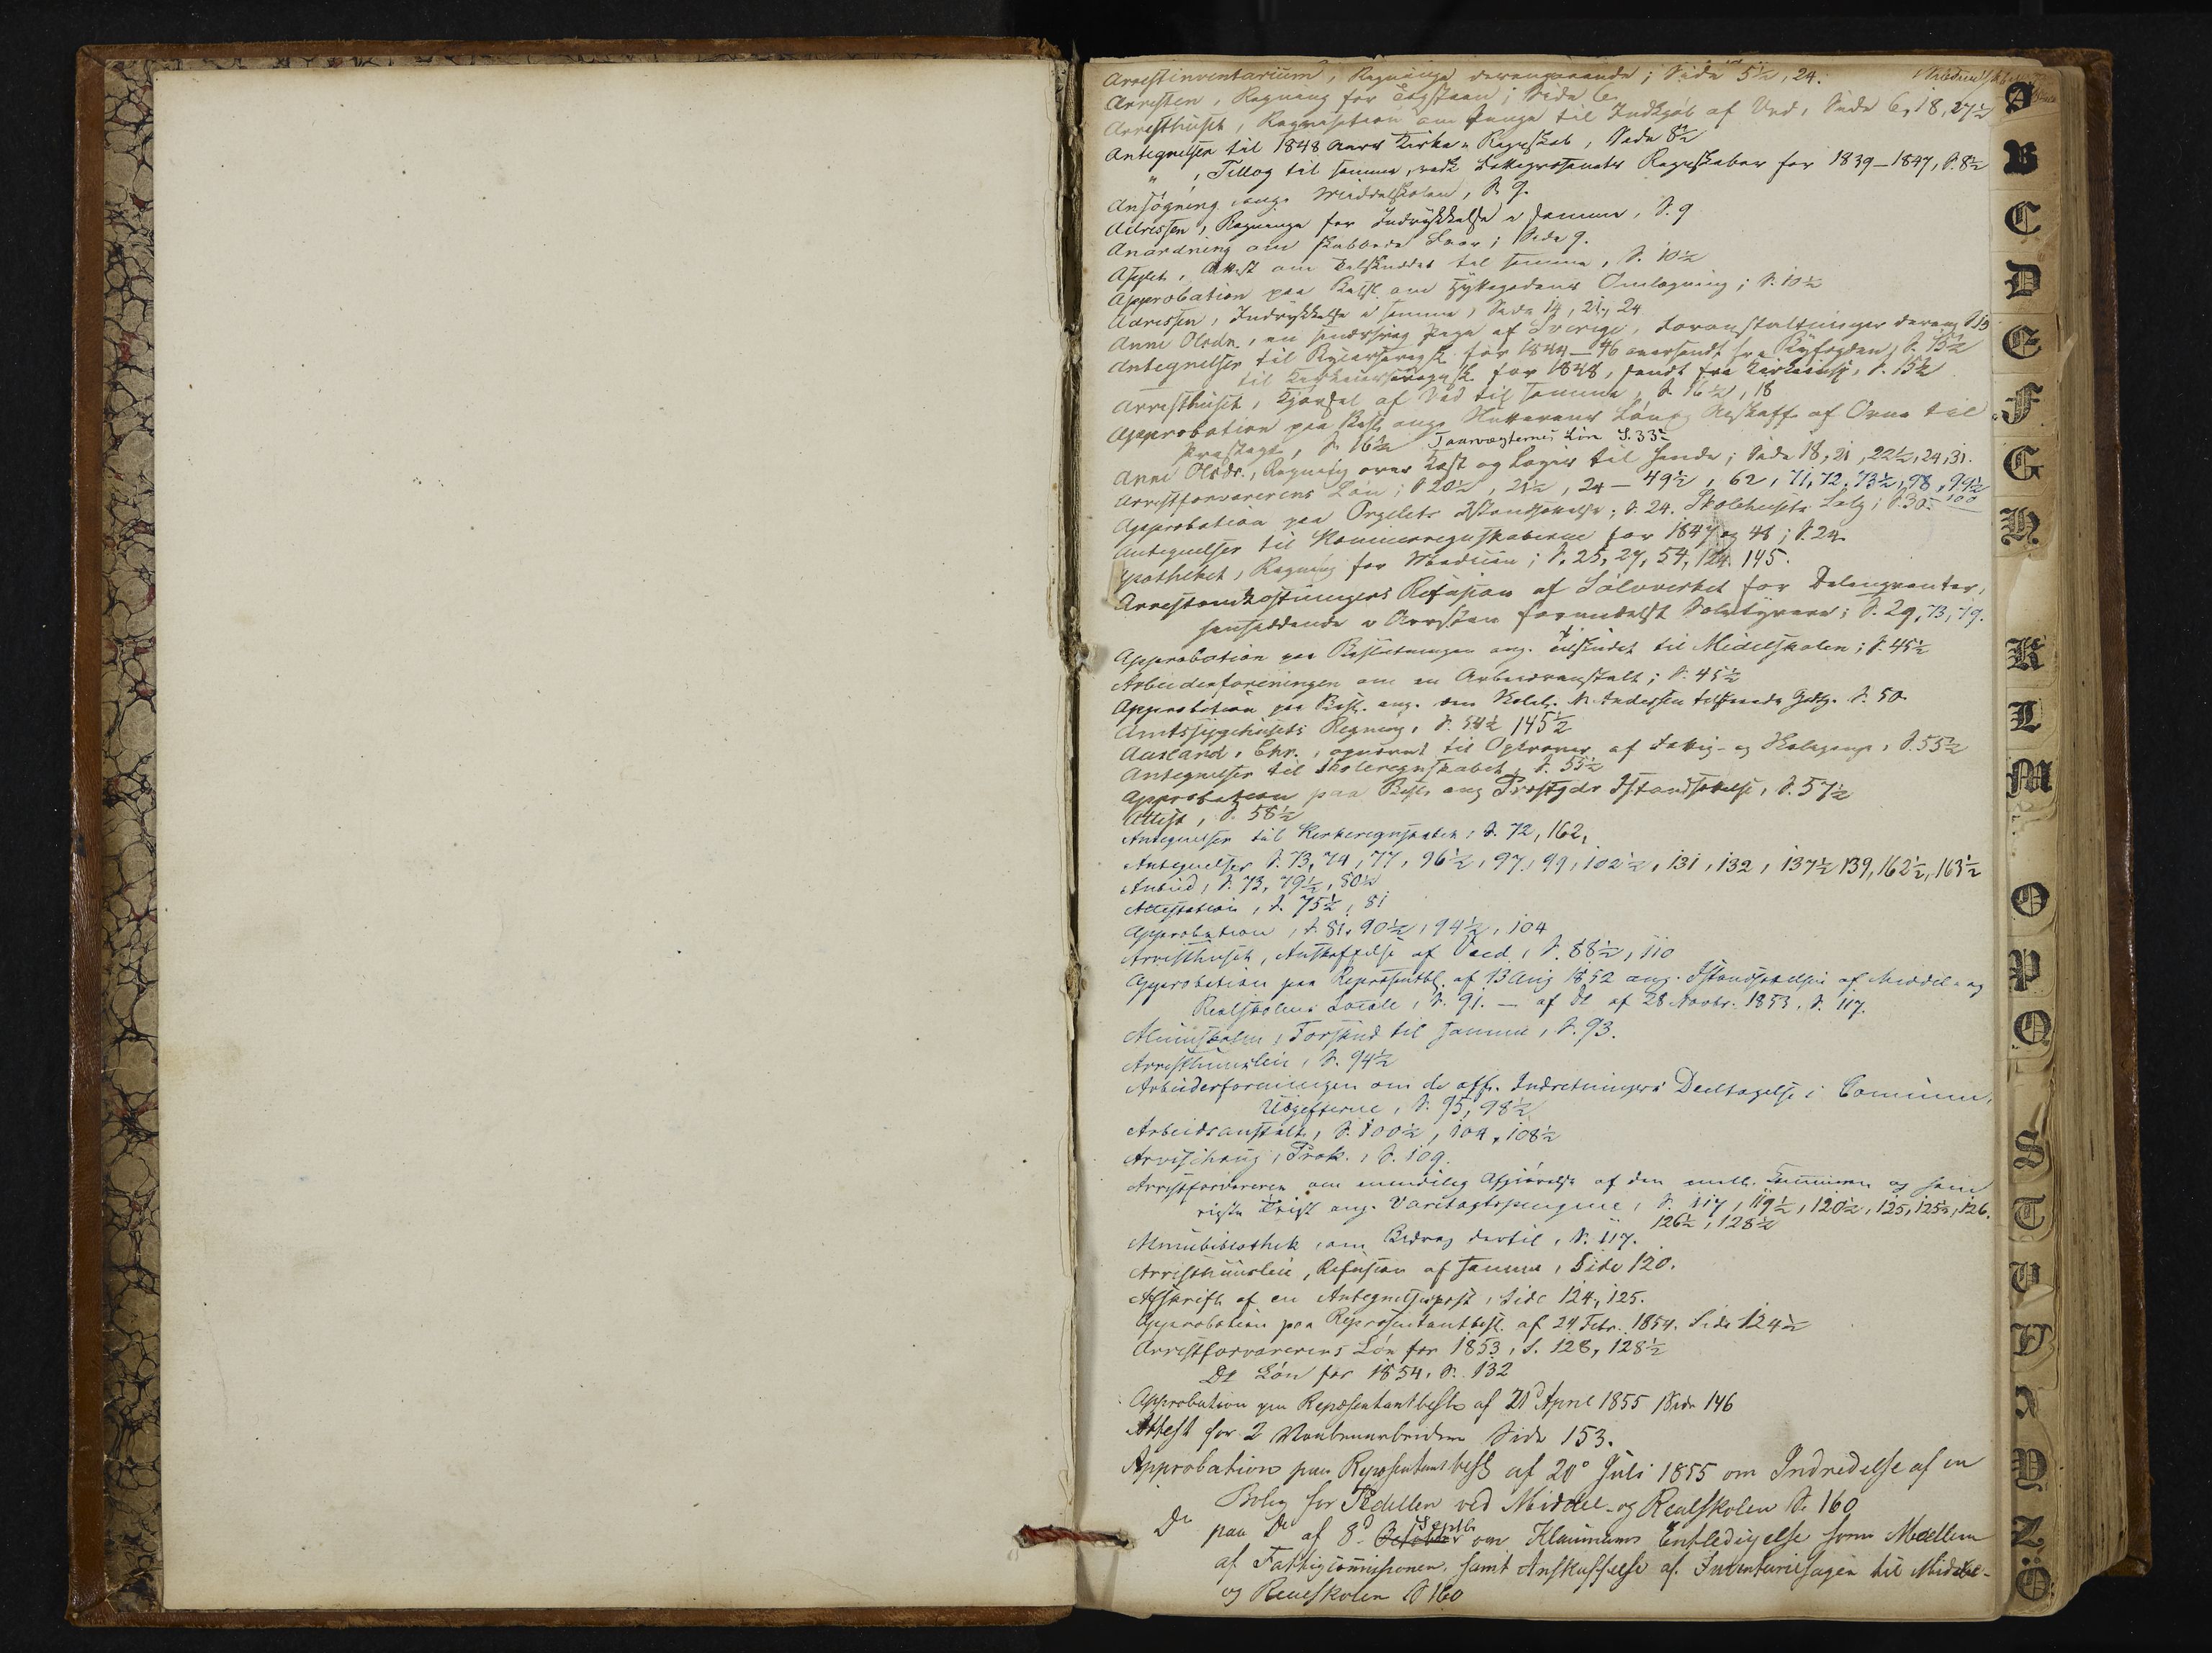 Arrestinventarium, Regninge derangaaende; Side 5½, 24.
Arresten, Regning for Tilsyn; Side 6.
Arresthuset, Reqvisition om Penge til Indkjøb af Ved, Side 6, 18, 27½
Antegnelser til 1848 Aars Kirke-Regnskab, Side 8½
" , Tillæg til samme, vedk. Regnskaber for 1839–1847, S. 8½
Ansøgning ang. Middelskolen, S. 9.
Adressen, Regninge for Indrykkelse i samme, S. 9
Anordning om skabbede Faar; Side 9.
Asylet, Attest om Tilskuddet til samme, S. 10½
Approbation paa Besl. om Omlægning; S. 10½
Adressen, Indrykkelse i samme, Side 14, 21, 24
Anne Olsdr., en Pige af Sverige, Foranstaltninger derang.
Antegnelser til for 1844–46 oversendt fra Byfogden, S. 15½
til for 1848, sendt fra S. 15½
Arresthuset, Kjørsel af Ved til samme, S. 16½, 18
Approbation paa Besl. ang. Løn og Anskaff. af Orne til
Præstegd, S. 16½ Taarnvægternes Løn S. 33½
Anne Olsdr., Regning over Kost og Logis til hende; Side 18, 21, 22½, 24, 31.
Arrestforvarerens Løn; S 20½, 21½, 24 – 49½, 62, 71, 72, 73½, 98, 99½
100
Approbation paa Orgelets Istandsættelse; S. 24. Skolehusets Salg; S. 30½
Antegnelser til Kæmnerregnskaberne for 1847 og 48; S. 24.
Apotheket, Regning for Medicin; S. 25, 27, 54, 124. 145.
Arrestomkostningers Refusion af Sølvverket for Delinqventer,
hensiddende i Arresten formedelst Sølvtyverie; S. 29, 73, 79.
Approbation paa Beslutningen ang. Tilskudet til Middelskolen; S. 45½
Arbeiderforeningen om en Arbeidsanstalt; S. 45½
Approbation paa Besl. ang. den N. Andersen Godtg. S. 50
Amtssygehusets Regning, S. 54½ 145½
Aasland, Chr., opnævnt til Opkræver af Fattig- og Skolepenge, S. 55½
Antegnelser til Skoleregnskabet, S. 55½
Approbation paa Besl. ang Præstgds Istandsættelse, S. 57½
Attest, S. 58½
Antegnelser til Kirkeregnskabet, S. 72, 162,
Antegnelser S. 73, 74, 77, 96½, 97, 99, 102½, 131, 132, 137½ 139, 162½, 163½
Anbud, S. 73, 79½, 80½
Attestation, S. 75½, 81
Approbation, S. 81, 90½, 94½, 104
Arresthuset, Anskaffelse af Veed, S. 88½, 110
Approbation paa Repræsentbl. af 13 Aug 1852 ang. Istandsættelse af Middel- og
Realskolens Locale, S. 91. – af Do af 28 Novbr. 1853, S. 117.
Almueskolen, Forskud til samme, S. 93.
Arresthuusleie, S. 94½
Arbeiderforeningen om de off. Indretningers Deeltagelse i Commune,
Udgifterne, S. 95, 98½
Arbeidsanstalt, S. 100½, 104, 108½
Arvesihaug, Prok., S. 109.
Arrestforvareren om mindelig Afgjørelse af den mell. Communen og ham
reiste Trist ang. Varetægtspengene, S. 117, 119½, 120½, 125, 125½, 126.
126½, 128½
Almuebibliothek, om Bidrag dertil, S. 117.
Arresthuusleie, Refusion af samme, Side 120.
Afskrift af en Antegnelsespost, Side 124, 125.
Approbation paa Repræsentantbesl. af 24 Febr. 1854. Side 124½
Arrestforvarerens Løn for 1853, S. 128, 128½
Do Løn for 1854, S. 132
Approbation paa Repræsentantbesl. af 21 April 1855 Side 146
Attest for 2 Side 153.
Approbation paa Repræsentantbesl. af 20de Juli 1855 om Indredelse af en
Bolig for Pedellen ved Middel- og Realskolen S. 160
Do paa Do af 8de Septb om Klaumanns Entledigelse som Medlem
af Fattigcommissionen, samt Anskaffelse af Inventariesager til Middel-
og Realskolen S 160
A
B
C
D
E
F
G
H
K
L
M
O
P
Q
S
T
U
V
X
Y
Z
Ö